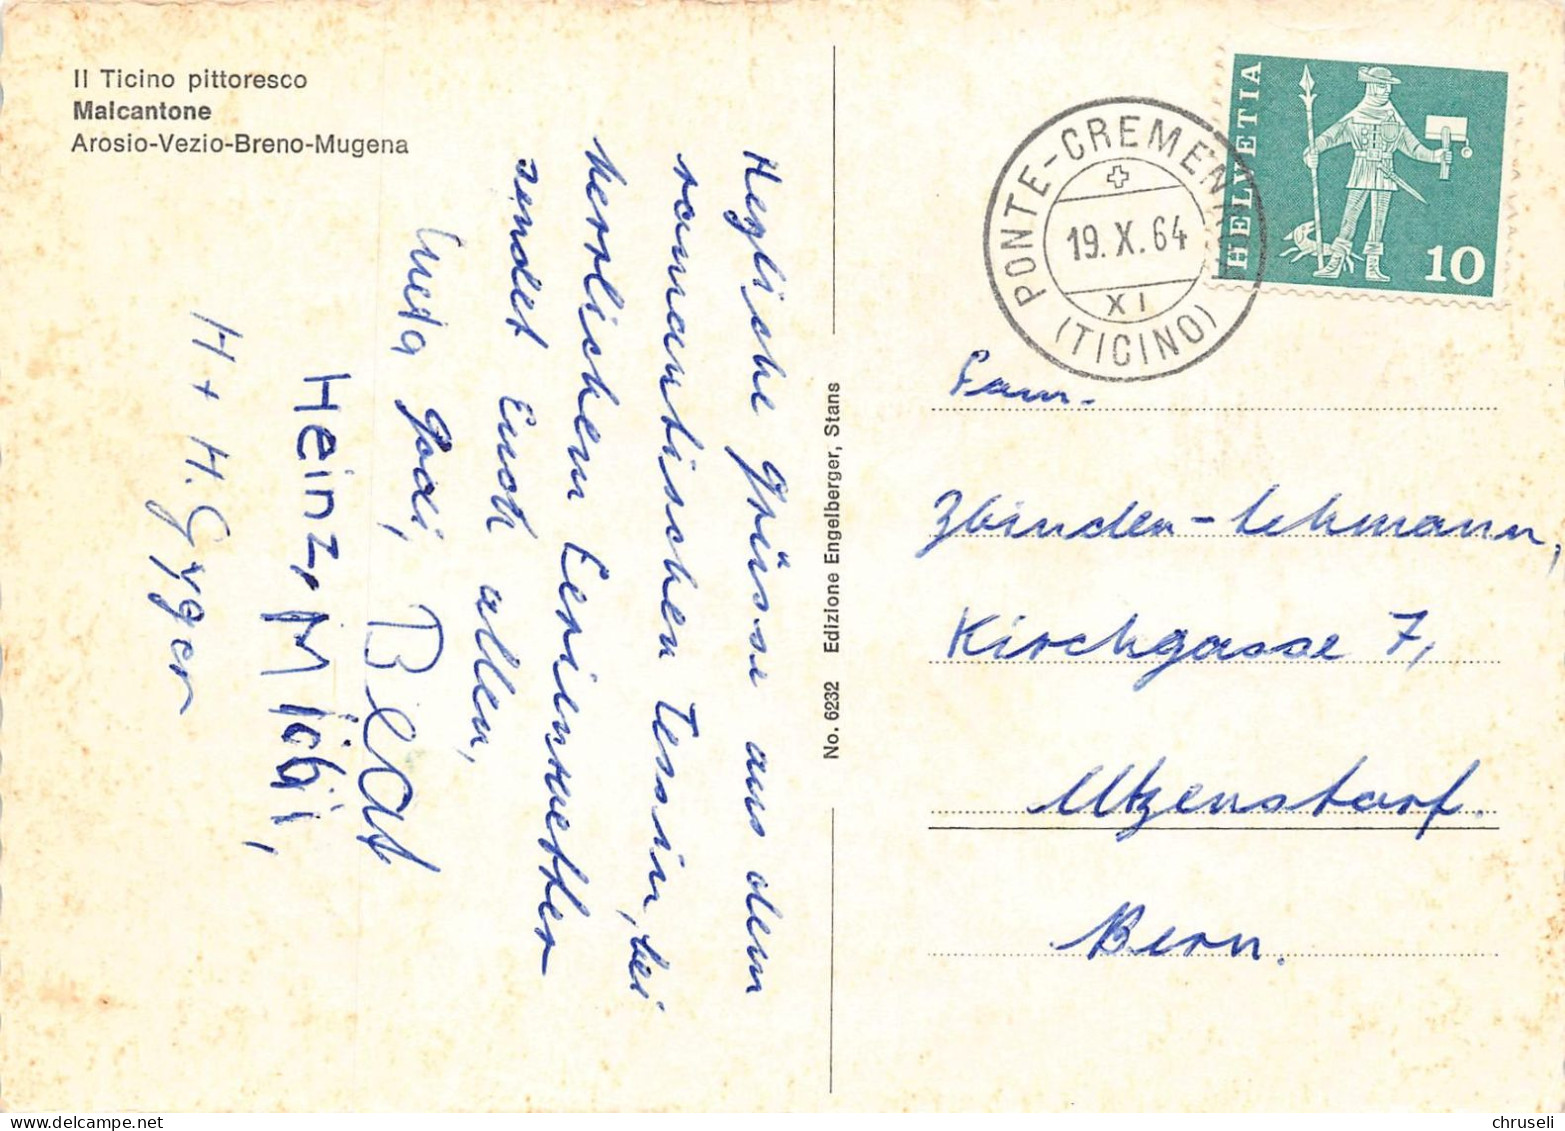 Il Ticino pittoresco
Malcantone
Arosio-Vezio-Breno-Mugena
Hegliche Grüsse aus dem
romantischen Tessin, bei
herrlichem Ferienwetter
sendet Euch allen,
Gödi, Beat
Heinz, Möbi,
H + H. Gyger
No. 6232 Edizione Engelberger, Stans
PONTE-CREMENAGA
19.X.64
XI
(TICINO)
HELVETIA
10
Fam.
Zbinden-Lehmann,
Kirchgasse 7,
Utzenstorf.
Bern.
chruseli